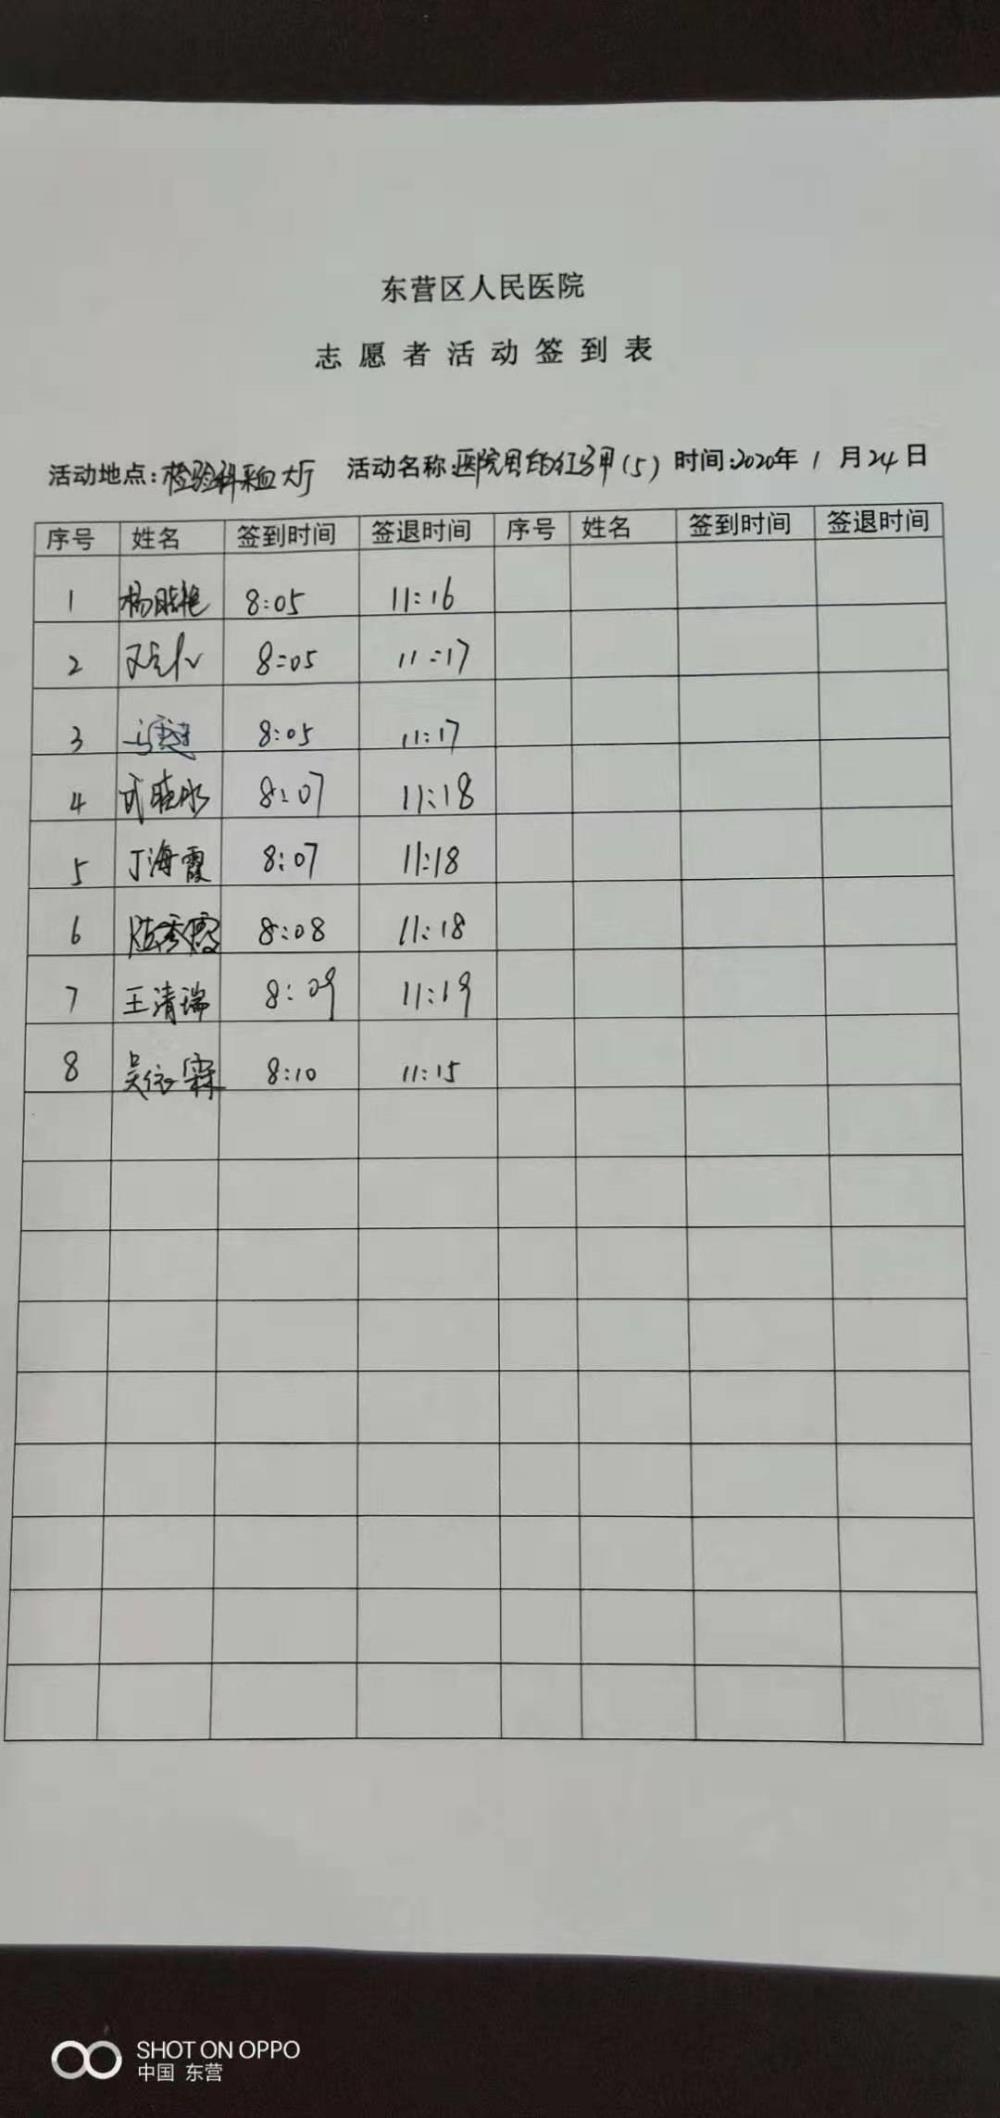 东营区人民医院
志愿者活动签到表
活动地点:检验科采血大厅 活动名称:医院里的红马甲(5) 时间:2020年1月24日
序号 姓名 签到时间 签退时间 序号 姓名 签到时间 签退时间
1 杨 8:05 11:16
2 8:05 11:17
3 8:05 11:17
4 8:07 11:18
5 丁海霞 8:07 11:18
6 陈秀霞 8:08 11:18
7 王清瑞 8:09 11:19
8 吴依霖 8:10 11:15
SHOT ON OPPO
中国 东营